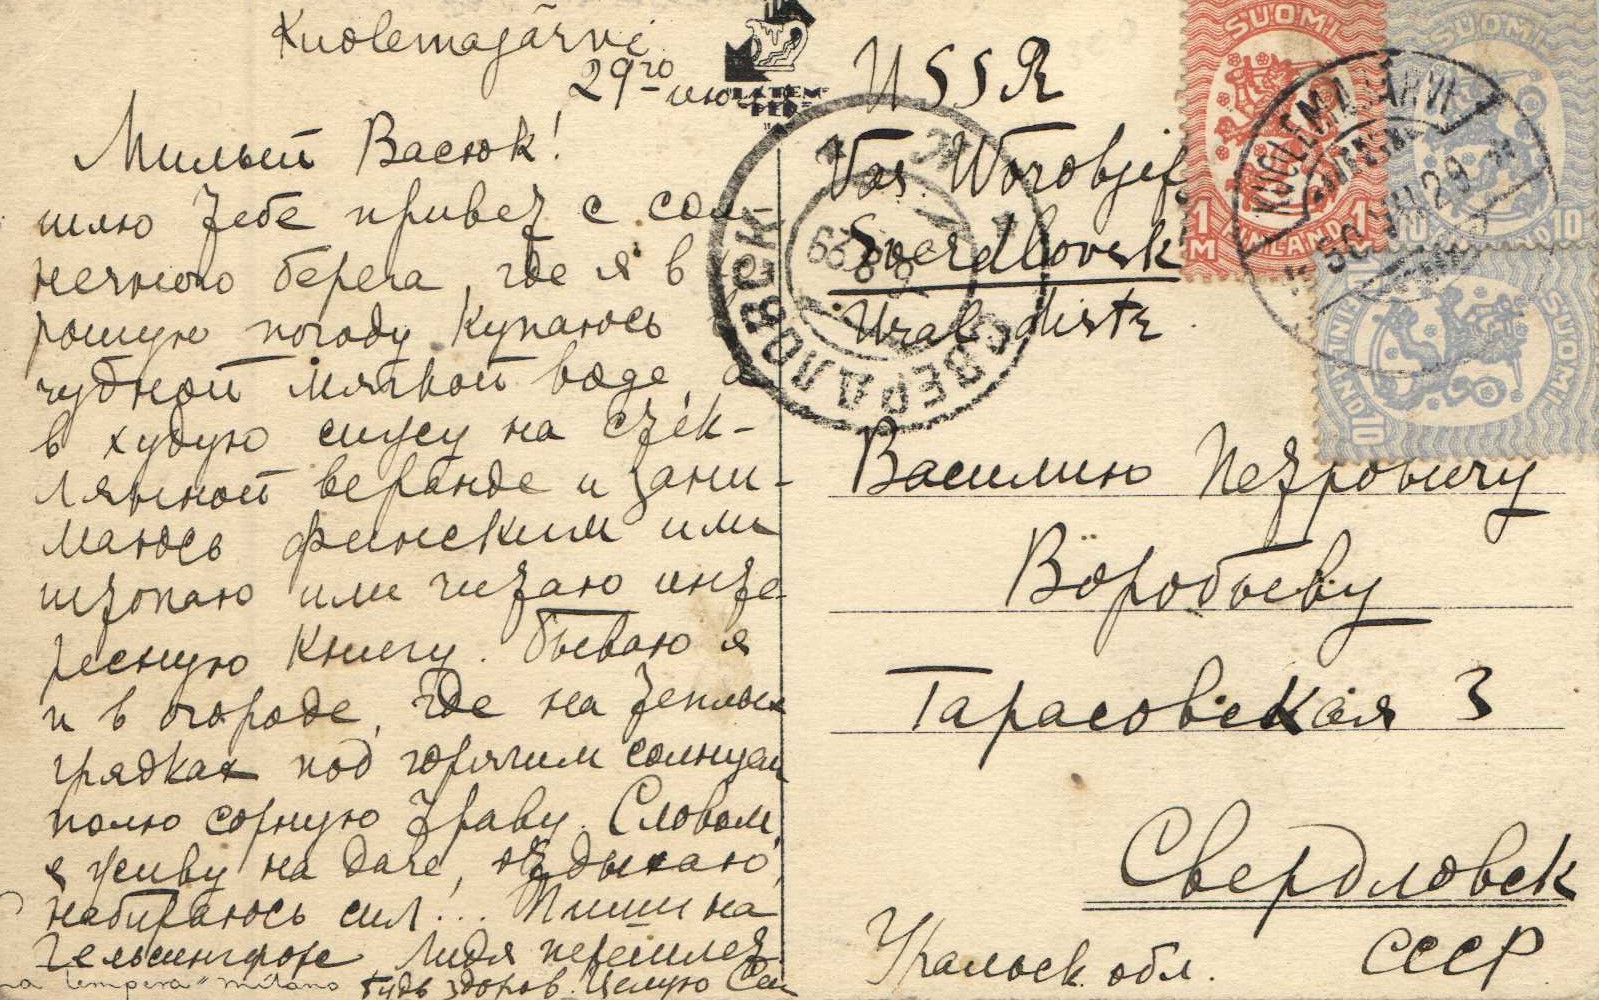 Kuolemajärvi
29го июля
Милый Васюк!
шлю тебе привет с сол-
нечного берега, где я в хо
рошую погоду купаюсь в
чудной мягкой воде, а
в худую сижу на стек-
лянной веранде и зани-
маюсь финским или
штопаю или читаю инте
ресную книгу. Бываю я
и в огороде, где на теплых
грядках под горячим солнцем
полю сорную траву. Словом,
я живу на даче, отдыхаю,
набираюсь сил!.. Пиши на
Гельсингфорс Лидя перешлет
Будь здоров. Целую
"tempera" milano
USSR
Vas. Worobjef
Sverdlovsk
Ural distr.
Василию Петровичу
Воробьеву
Тарасовская 3
Свердловск
Уральск. обл. СССР
SUOMI
1 M 1 M
FINLAND
SUOMI
10 10
SUOMI
FINLAND
10
KUOLEMAJÄRVI
29
СВЕРДЛОВСК